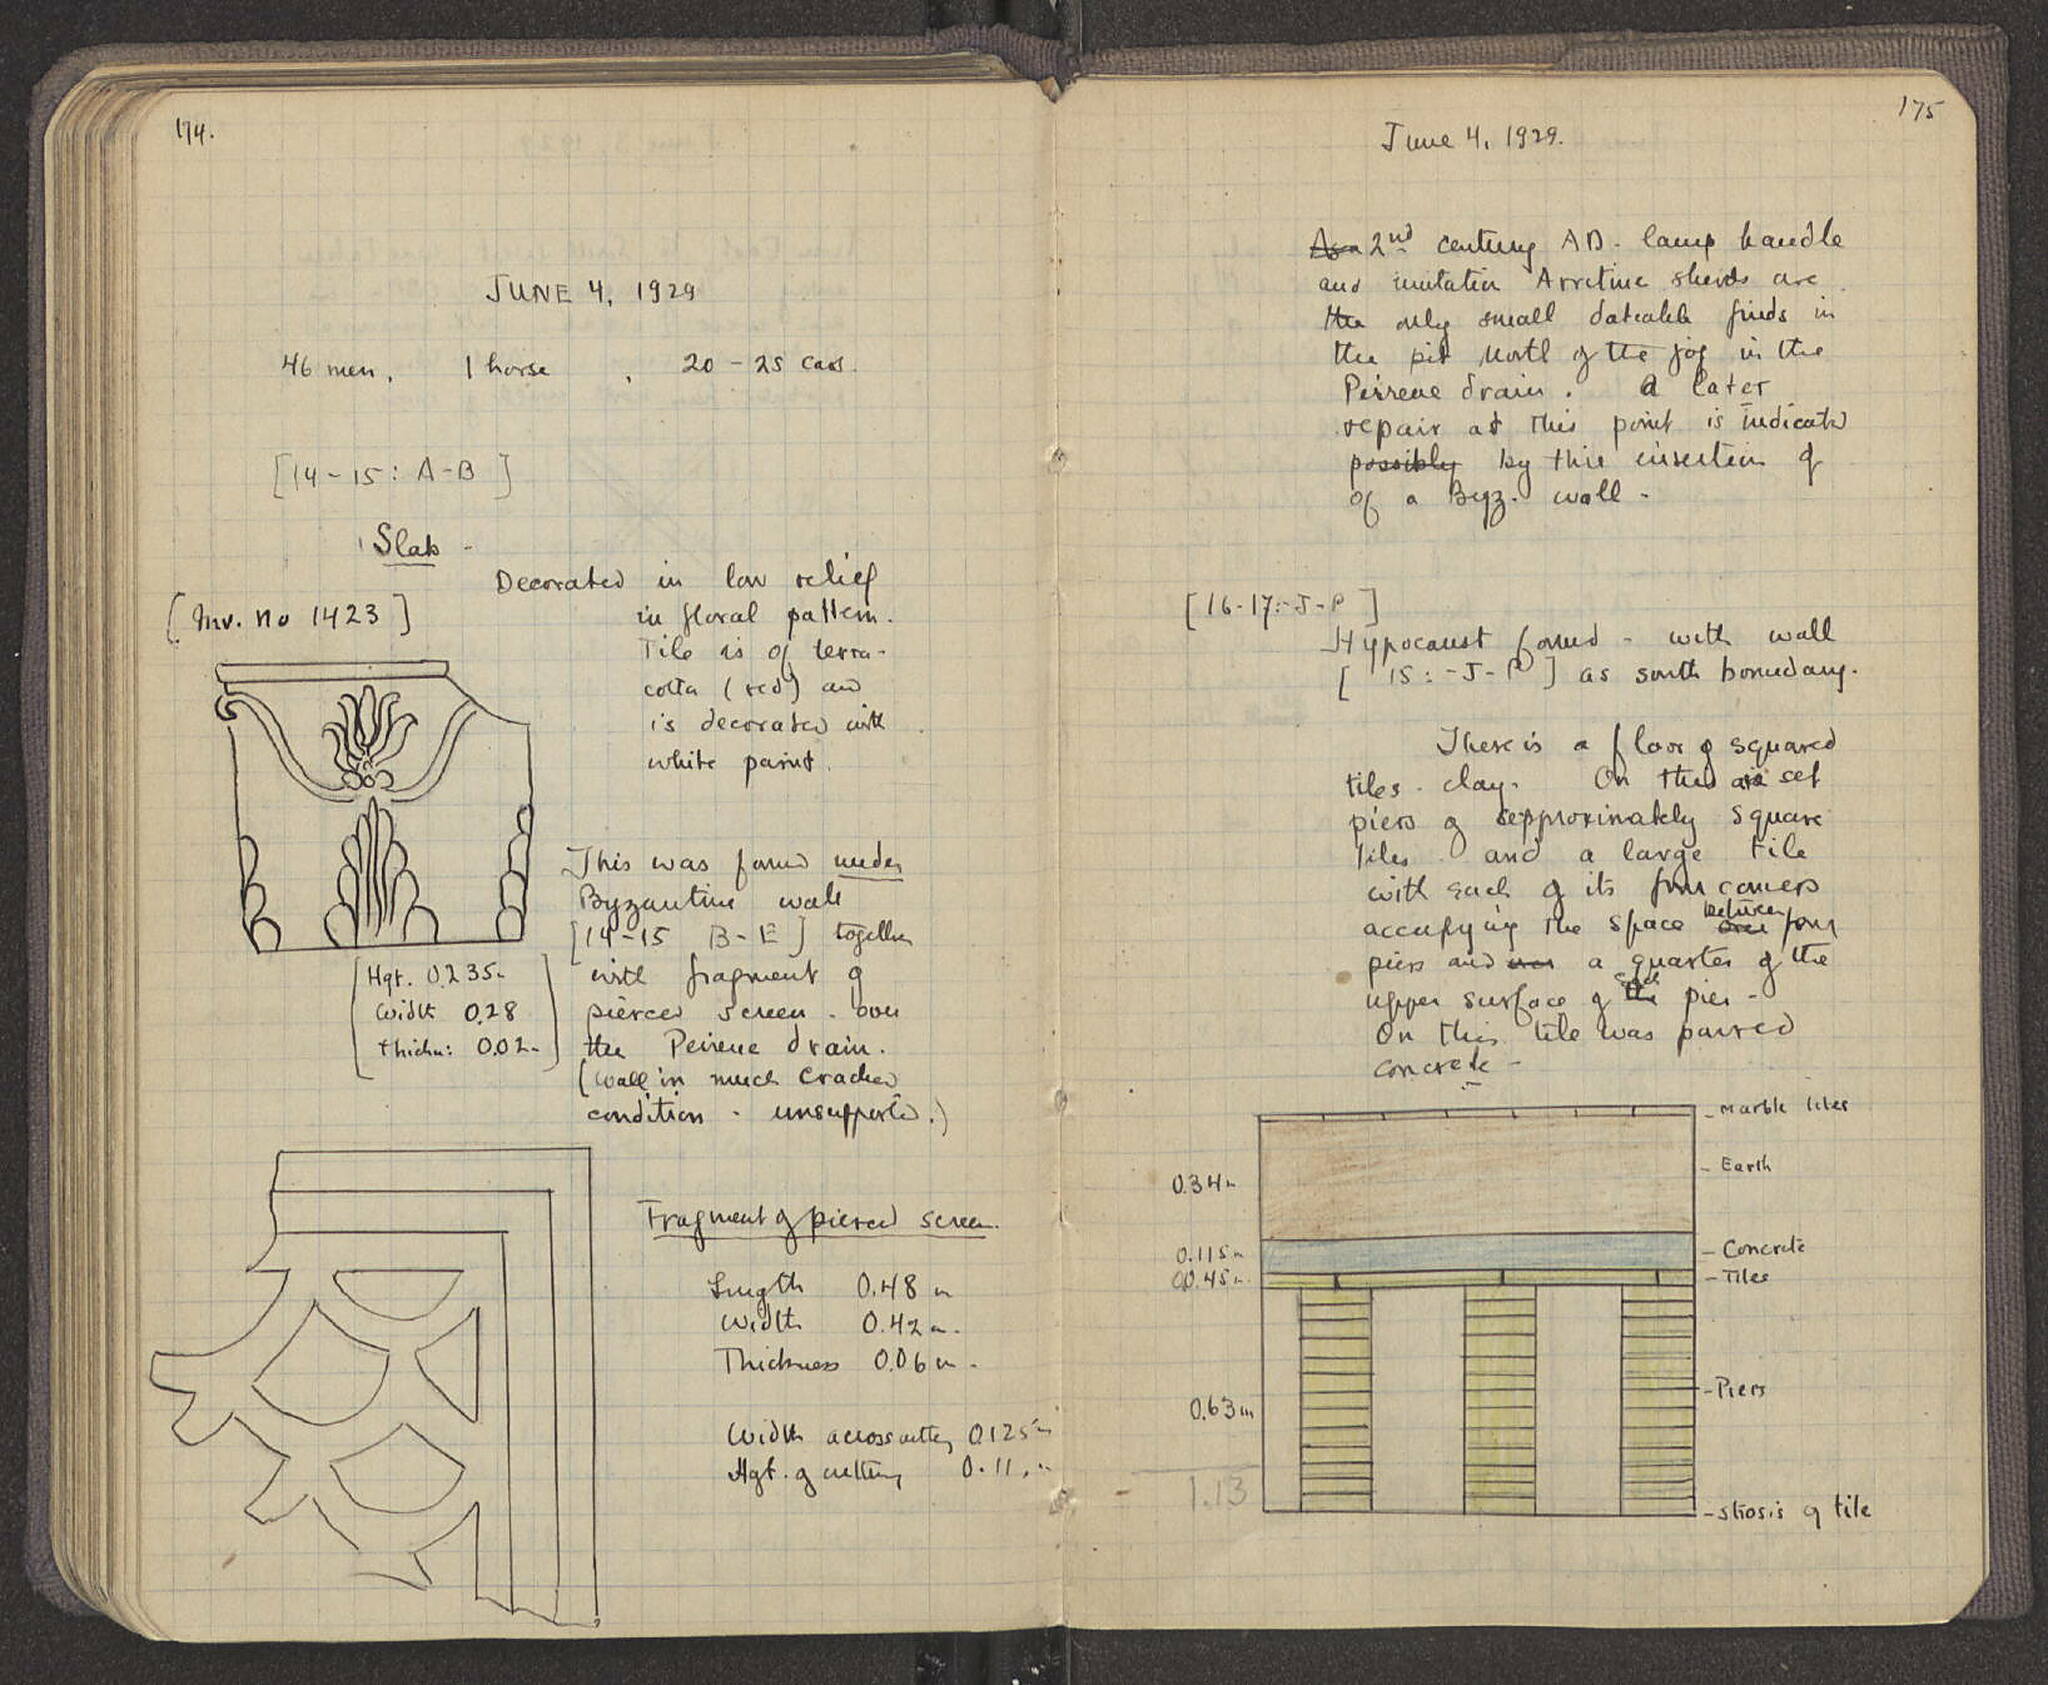 174.
JUNE 4, 1929
46 men, 1 horse, 20 - 25 cars.
[14-15: A-B]
Slab -
[Inv. no 1423]
Decorated in low relief
in floral pattern.
Tile is of terra-
cotta (red) and
is decorated with
white paint.
This was found under
Byzantine wall
[14-15 B-E] together
with fragment of
pierced screen - over
the Peirene drain.
(wall in much cracked
condition - unsupported.)
[Hgt. 0.235m
Width 0.28
thickn: 0.02m]
Fragment of pierced screen.
Length 0.48 m
Width 0.42 m.
Thickness 0.06 m -
Width across cutting 0.125m
Hgt. of cutting 0.11 m
175
June 4, 1929.
As a 2nd century AD. lamp handle
and imitation Arretine sherds are
the only small dateable finds in
the pit North of the jog in the
Peirene drain. A later
repair at this point is indicated
possibly by the insertion of
of a Byz. wall -
[16-17:-J-P]
Hypocaust found - with wall
[15:-J-P] as south boundary.
There is a floor of squared
tiles - clay. On this are set
piers of approximately square
tiles and a large tile
with each of its four corners
occupying the space between four
piers and over a quarter of the
upper surface of each pier -
On this tile was poured
concrete -
- Marble tiles
- Earth
0.34m
- Concrete
0.115m
- Tiles
0.45m
- Piers
0.63m
1.13
- strosis of tile